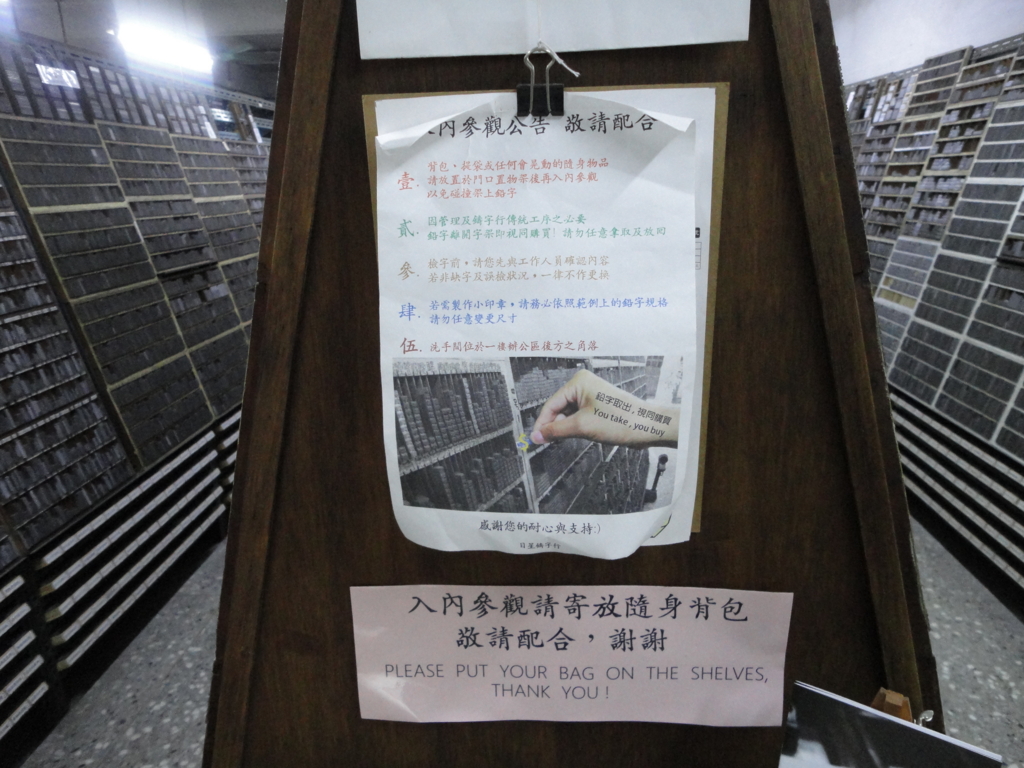 入內參觀公告 敬請配合
壹. 背包、提袋或任何會晃動的隨身物品
請放置於門口置物架後再入內參觀
以免碰撞架上鉛字
貳. 因管理及鑄字行傳統工序之必要
鉛字離開字架即視同購買! 請勿任意拿取及放回
參. 檢字前，請您先與工作人員確認內容
若非缺字及誤檢狀況，一律不作更換
肆. 若需製作小印章，請務必依照範例上的鉛字規格
請勿任意變更尺寸
伍. 洗手間位於一樓辦公區後方之角落
鉛字取出，視同購買
You take , you buy
感謝您的耐心與支持:)
日星鑄字行
入內參觀請寄放隨身背包
敬請配合，謝謝
PLEASE PUT YOUR BAG ON THE SHELVES,
THANK YOU !